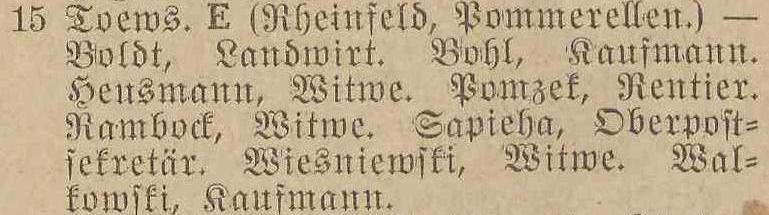 15 Toews. E (Rheinfeld, Pommerellen.) —
Boldt, Landwirt. Bohl, Kaufmann.
Heusmann, Witwe. Pomzek, Rentier.
Rambock, Witwe. Sapieha, Oberpost-
sekretär. Wiesniewski, Witwe. Wal-
kowski, Kaufmann.